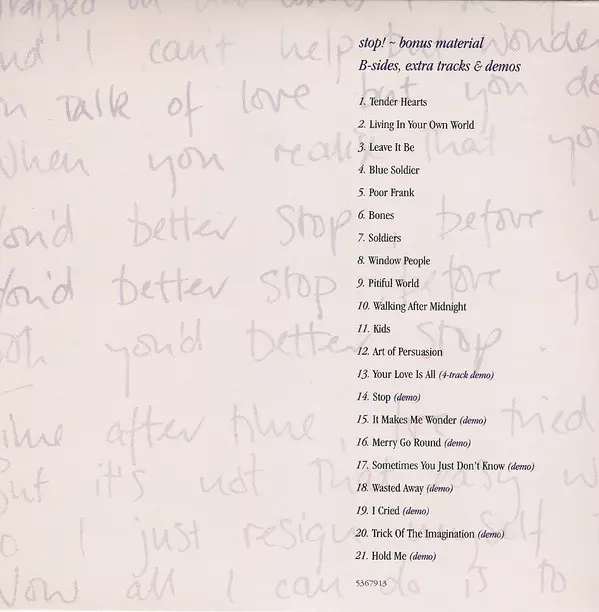 stop! ~ bonus material
B-sides, extra tracks & demos
1. Tender Hearts
2. Living In Your Own World
3. Leave It Be
4. Blue Soldier
5. Poor Frank
6. Bones
7. Soldiers
8. Window People
9. Pitiful World
10. Walking After Midnight
11. Kids
12. Art of Persuasion
13. Your Love Is All (4-track demo)
14. Stop (demo)
15. It Makes Me Wonder (demo)
16. Merry Go Round (demo)
17. Sometimes You Just Don't Know (demo)
18. Wasted Away (demo)
19. I Cried (demo)
20. Trick Of The Imagination (demo)
21. Hold Me (demo)
5367913
I can't help but wonder
Talk of love but you do
when you realize that you
you'd better stop, before
you'd better stop before yo
ooh you'd better stop.
time after time, I've tried
But it's not that easy w
I just resign myself t
Now all I can do is to